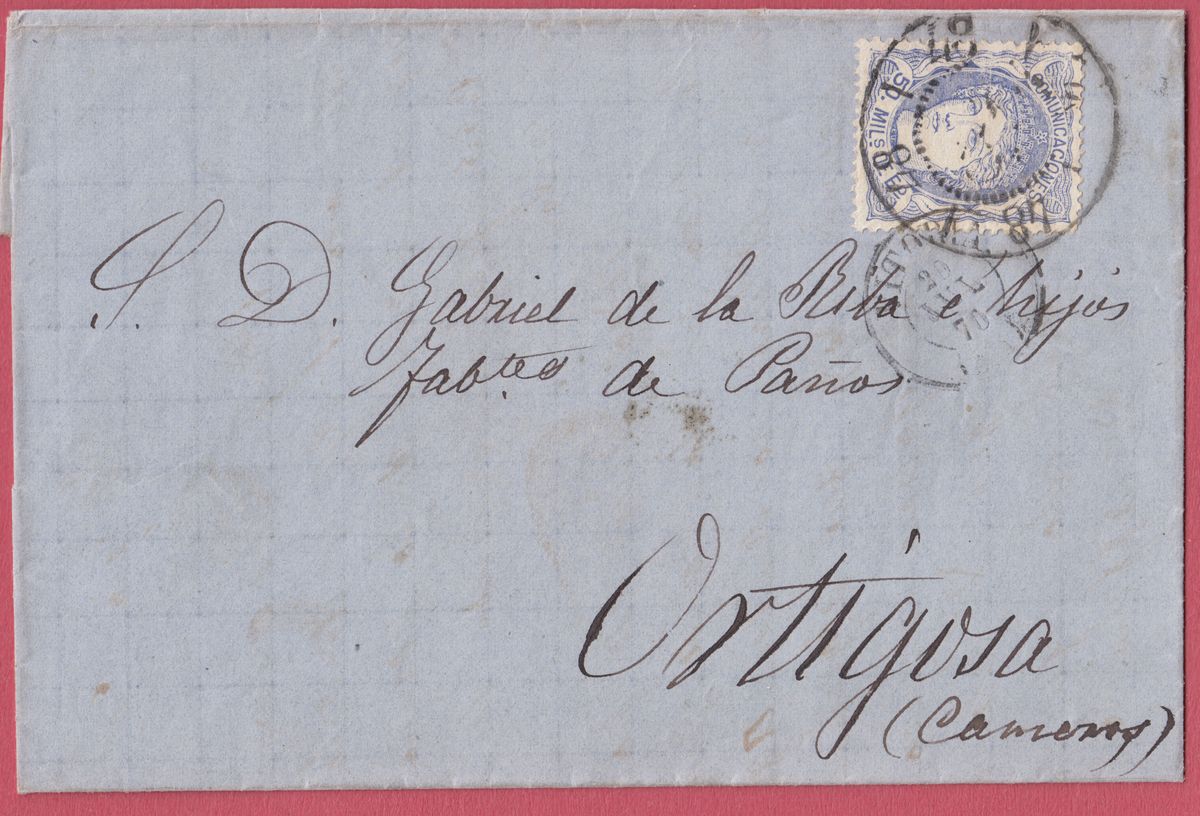 COMUNICACIONES
50 MILS D E
S. D. Gabriel de la Riba e hijos
Fabtes de Paños
Ortigosa
(Cameros)
70